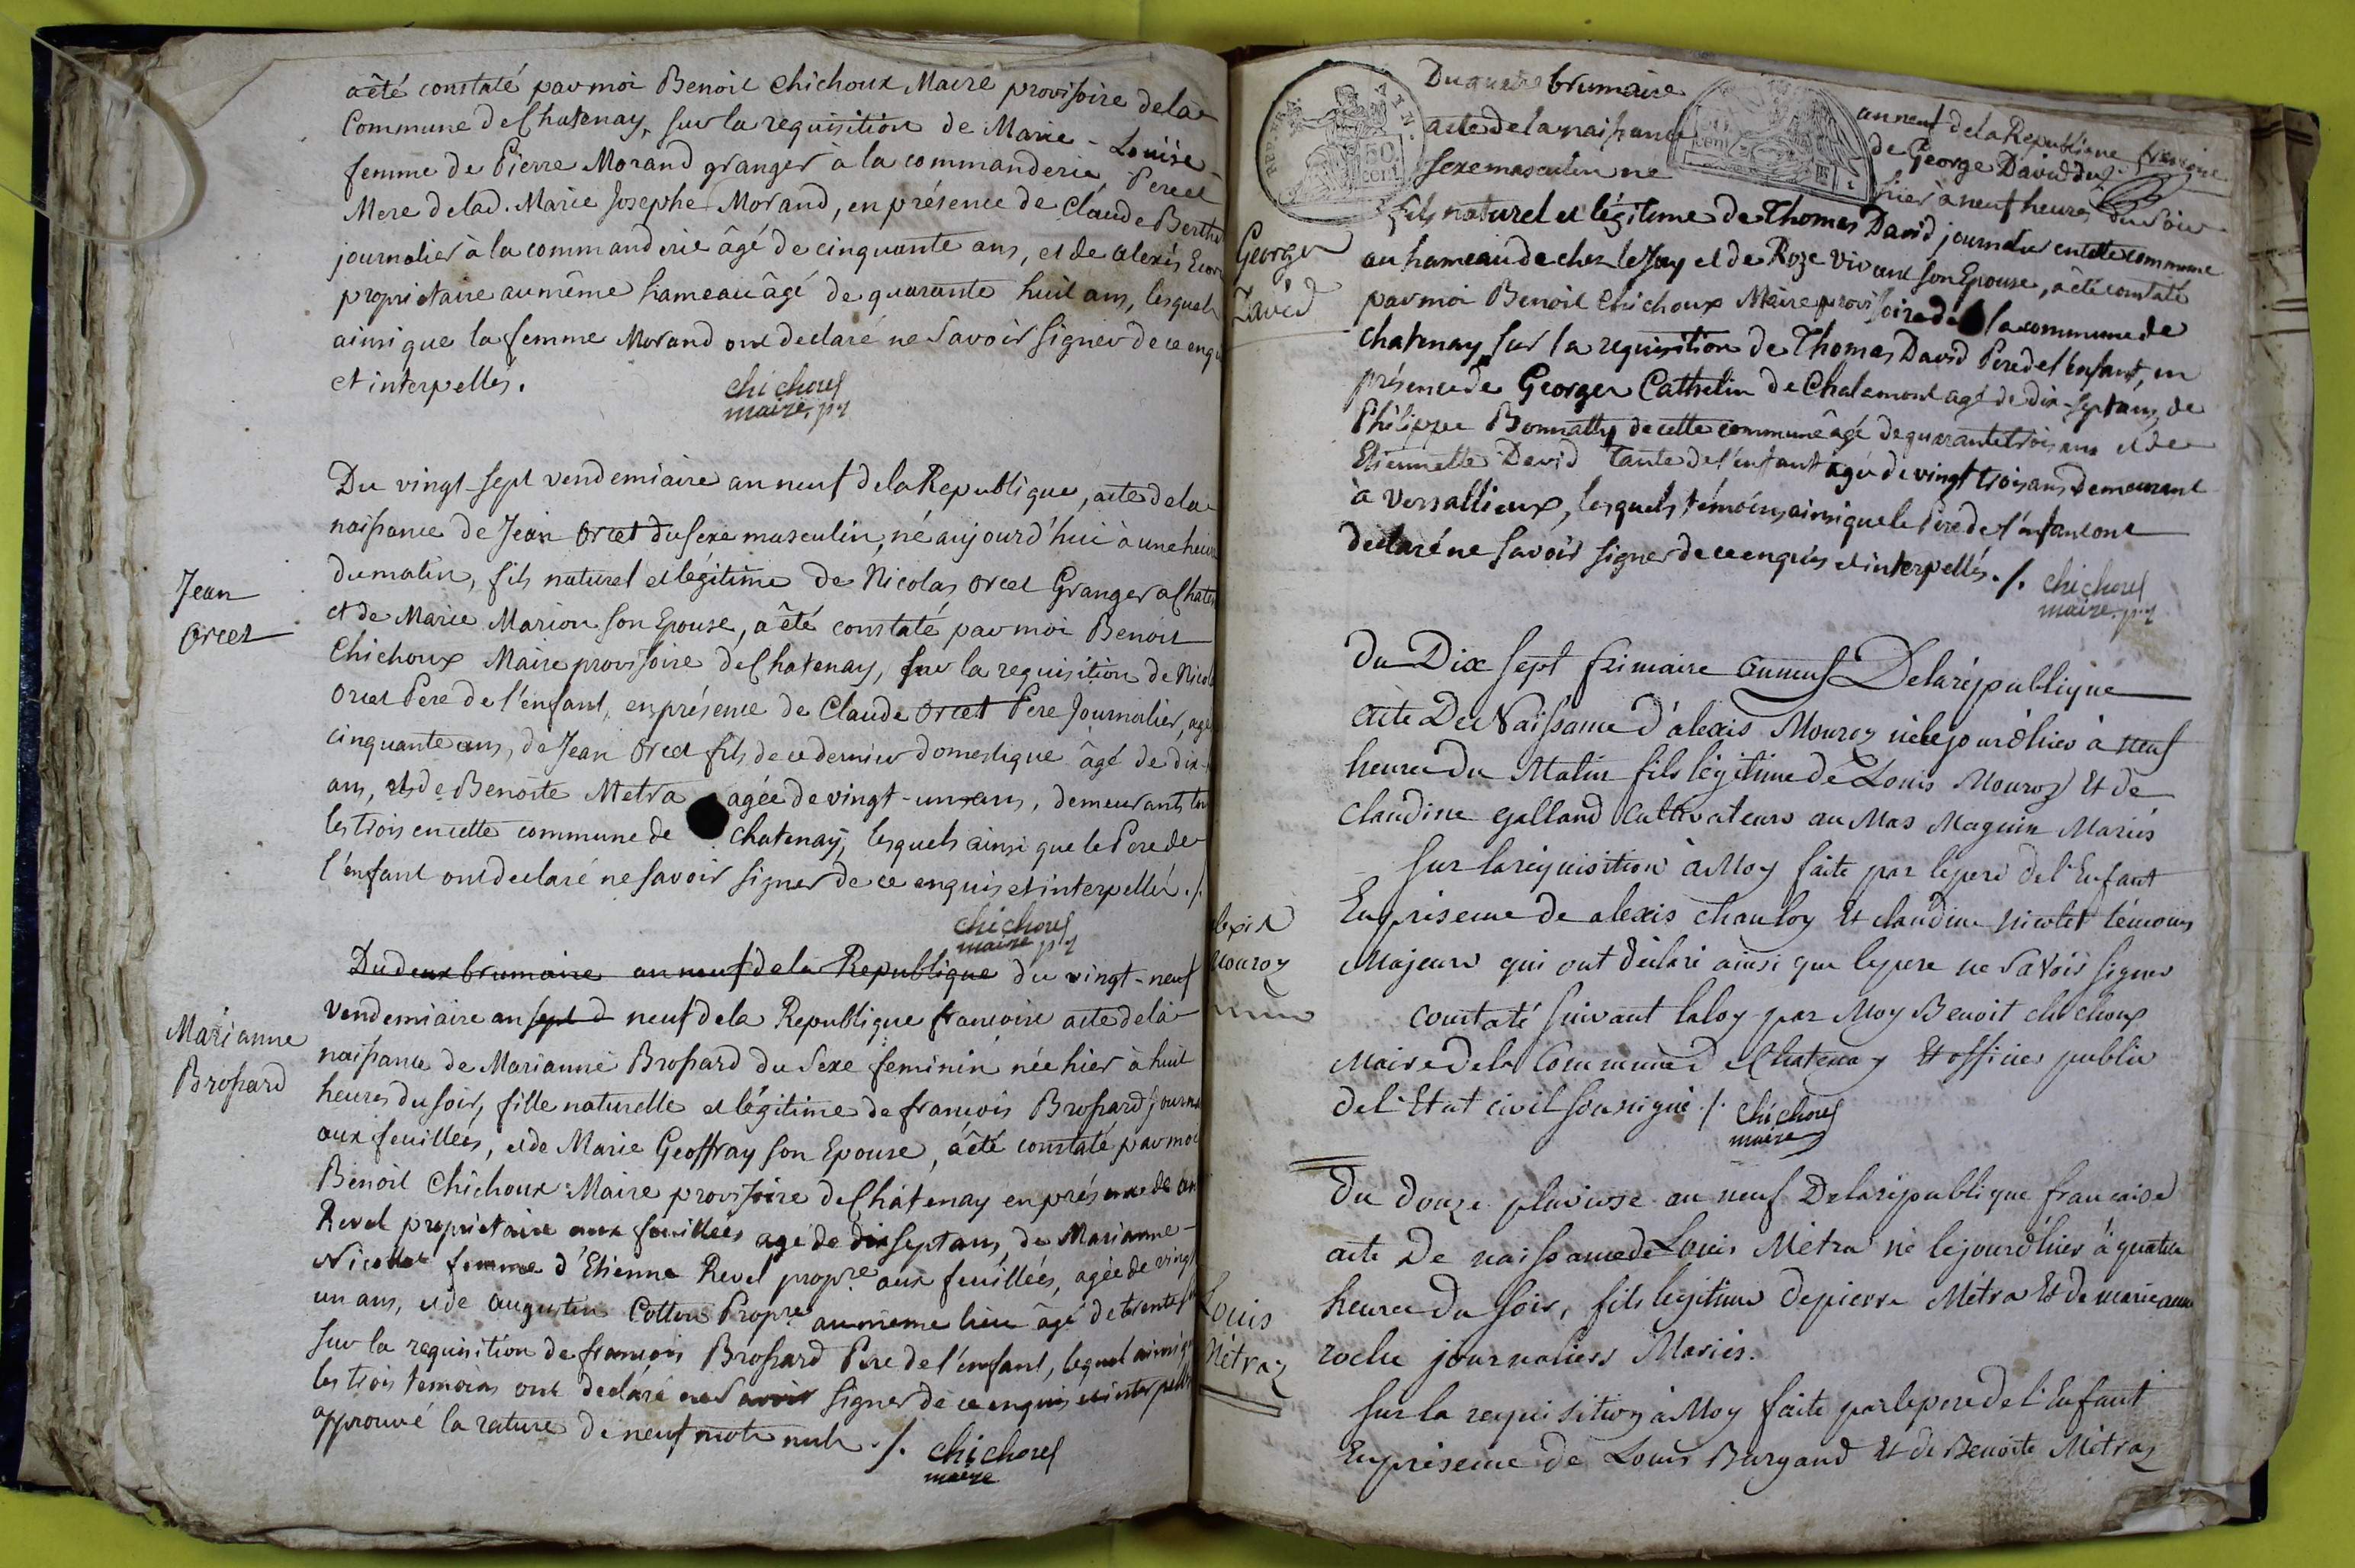 a été constaté par moi Benoit Chichoux Maire provisoire dela
Commune de Chatenay, sur la requisition de Marie - Louise
femme de Pierre Morand granger à la commanderie, Pere et
Mere de lad. Marie Josephe Morand, en présence de Claude Berth
journalier à la commanderie âgé de cinquante ans, et de alexis
proprietaire au même hameau âgé de quarante huit ans, lesquels
ainsi que la femme Morand ont declaré ne Savoir signer de ce enqu
et interpellés.
chichoux
maire, pr
Du vingt-sept vendemiaire an neuf de la Republique, acte de la
naissance de Jean Orcet du sexe masculin, né aujourd'hui à une heure
du matin, fils naturel et légitime de Nicolas Orcet Granger a Chate
Jean
Orcet
et de Marie Marion son Epouse, a été constaté par moi Benoit
Chichoux Maire provisoire de Chatenay, sur la requisition de Nicol
Orcet Pere de l'enfant, en présence de Claude Orcet Pere Journalier, age
cinquante ans, de Jean Orcet fils de ce dernier domestique âgé de dix-
ans, et de Benoite Metra agée de vingt-un ans, demeurants
les trois en cette commune de chatenay, lesquels ainsi que le Pere de
l'enfant ont declaré ne savoir signer de ce enquis et interpellés ./.
chichoux
maire pr
Du deux brumaire an neuf de la Republique du vingt-neuf
Vendemiaire an sept d neuf de la Republique françoise acte de la
Marianne
Brossard
naissance de Marianne Brossard du Sexe feminin née hier à huit
heures du soir, fille naturelle et légitime de françois Brossard journa
aux feuillées, et de Marie Geoffray son Epouse, a été constaté par moi
Benoit Chichoux Maire provisoire de Chatenay en présence de
Revel proprietaire aux feuillées agé de dix sept ans, de Marianne -
Nicollet femme d'Etienne Revel propre. aux feuillées, agée de vingt
un ans, et de augustin Cotton Propre au même lieu âgé de trente
sur la requisition de françois Brossard Pere de l'enfant, lequel ainsi q
les trois temoins ont declaré ne Savoir signer de ce enquis et interpell
approuvé la rature de neuf mots nuls ./.
chichoux
maire
Du quatre brumaire an neuf de la Republique françoise
acte de la naissance de George David du
sexe masculin né hier à neuf heures du soir
REP. FRA. 50 cent.
fils naturel et légitime de Thomas David journalier en cette commune
George
David
au hameau de chez le Jay et de Roze Vivant son Epouse, a été constaté
par moi Benoit Chichoux Maire provisoire de la commune de
chatenay sur la requisition de Thomas David Pere de l'enfant, en
présence de George Cathelin de Chalamont agé de dix-sept ans, de
Philippe Bonnatty de cette commune âgé de quarante trois ans et de
Etiennette David tante de l'enfant agée de vingt trois ans demeurant
à Versallieux, lesquels témoins ainsi que le Pere de l'enfant ont
declaré ne savoir signer de ce enquis et interpellés ./.
chichoux
maire. pr
du Dix sept frimaire an neuf De la république
acte De Naissance d'alexis Mouroz né le jour d'hier à neuf
heures du Matin fils légitime de Louis Mouroz Et de
claudine galland Cultivateurs au Mas Maguin Mariés
sur la réquisition à Moy faite par le pere de l'Enfant
alexis
Mouroz
En présence de alexis chanloy Et claudine nicolet témoins
Majeurs qui ont déclaré ainsi que le pere ne Savoir signer
constaté suivant la loy par Moy Benoit chichoux
Maire De la Commune de Chatenay Et officier public
de l'Etat civil sousigné ./.
chichoux
maire
du douze pluviose an neuf De la république francaise
acte De naissance de Louis Métra né le jour d'hier à quatre
heures du soir, fils legitime de pierre Métra Et de marieanne
Louis
Métraz
roche journaliers Mariés.
sur la requisition à Moy faite par le pere de l'Enfant
En présence de Louis Burgand Et de Benoite Métraz